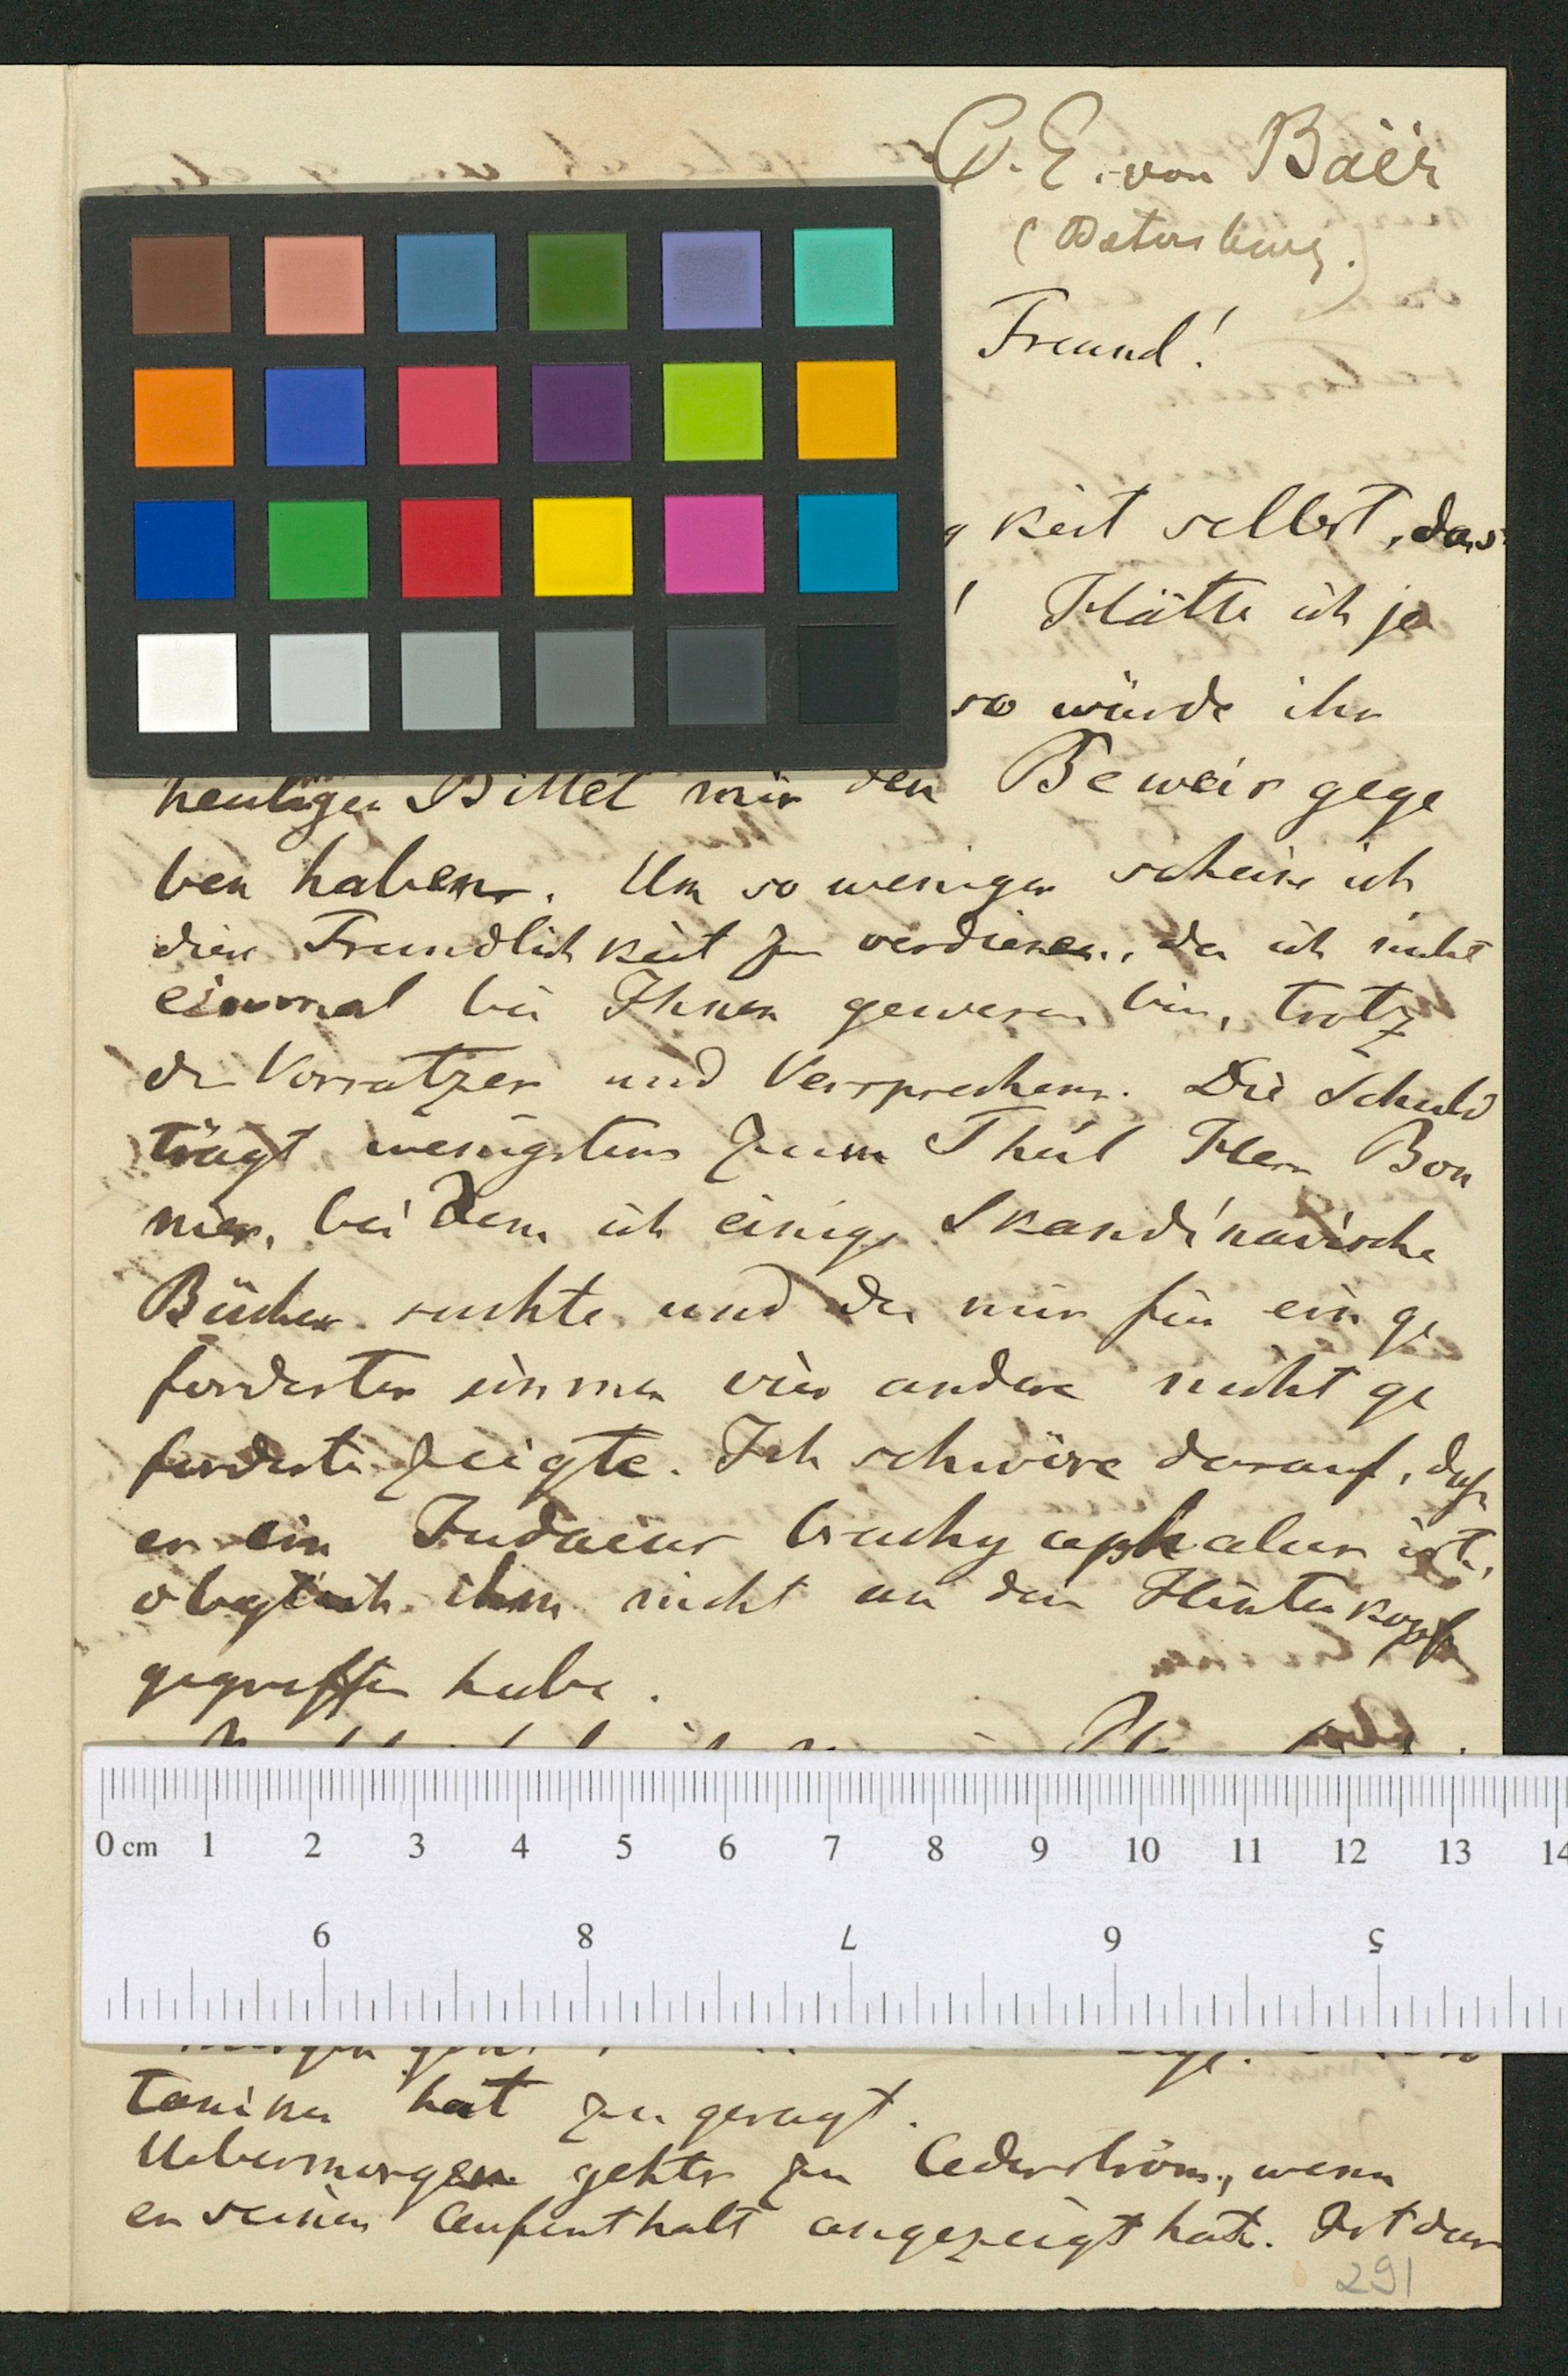 C. E. von Baër
(Petersburg.)
Freund!
keit selbst, das
! Hätte ich je
so würde ihr
heutiges Billet mir den Beweis gege
ben haben. Um so weniger scheine ich
diese Freundlichkeit zu verdienen, da ich nicht
einmal bei Ihnen gewesen bin, trotz
des Vorsatzes und Versprechens. Die Schuld
trägt wenigstens zum Theil Herr Bon
nier, bei dem ich einige Skandinavische
Bücher suchte und der mir für ein ge
fordertes immer vier andere nicht ge
forderte zeigte. Ich schwöre darauf, daß
er ein Judaeus brachycephalus ist,
obgleich ihm nicht an den Hinterkopf
gegriffen habe.
0 cm 1 2 3 4 5 6 7 8 9 10 11 12 13 14
9 8 7 6 5
taniker hat zugesagt.
Uebermorgen gehts zu Cederström, wenn
er seinen Aufenthalt angezeigt hat. Ist das
291